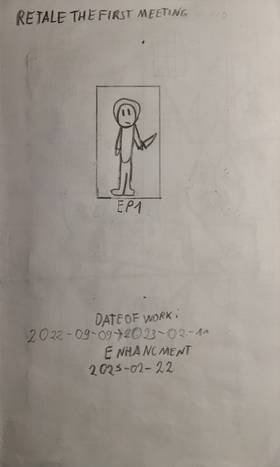 RETALE THE FIRST MEETING
EP1
DATE OF WORK:
2022-09-09→2023-02-11
ENHANCMENT
2025-02-22